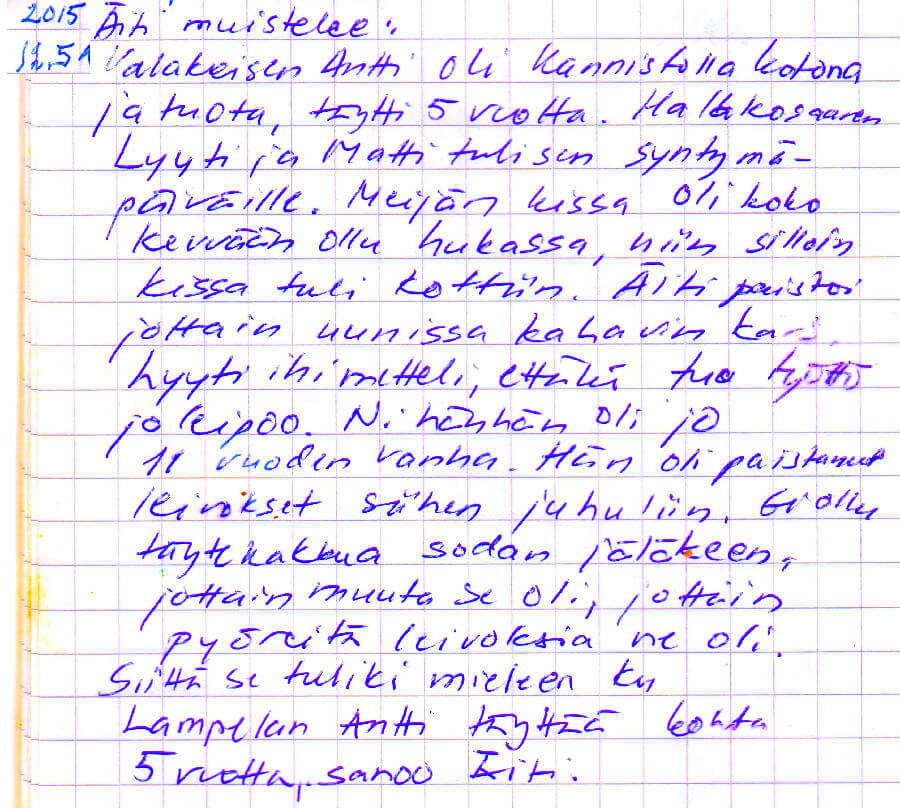 2015 Äiti muistelee:
12.5. Valakeisen Antti oli Kannistolla kotona
ja tuota, täytti 5 vuotta. Haltakosaaren
Lyyti ja Matti tuli sen syntymä-
päiväille. Meijän kissa oli koko
kevvään ollu hukassa, niin silloin
kissa tuli kottiin. Äiti paistoi
jottain uunissa kahavin
Lyyti ihimetteli, ettäkä tua tyttö
jo leipoo. Ni hänhän oli jo
11 vuoden vanha. Hän oli paistanut
leivokset siihen juhuliin. Ei ollu
täytekakkua sodan jäläkeen,
jottain muuta se oli, jottain
pyöreitä leivoksia ne oli.
Siittä se tuliki mieleen ku
Lampelan Antti täyttää kohta
5 vuotta, sanoo Äiti.